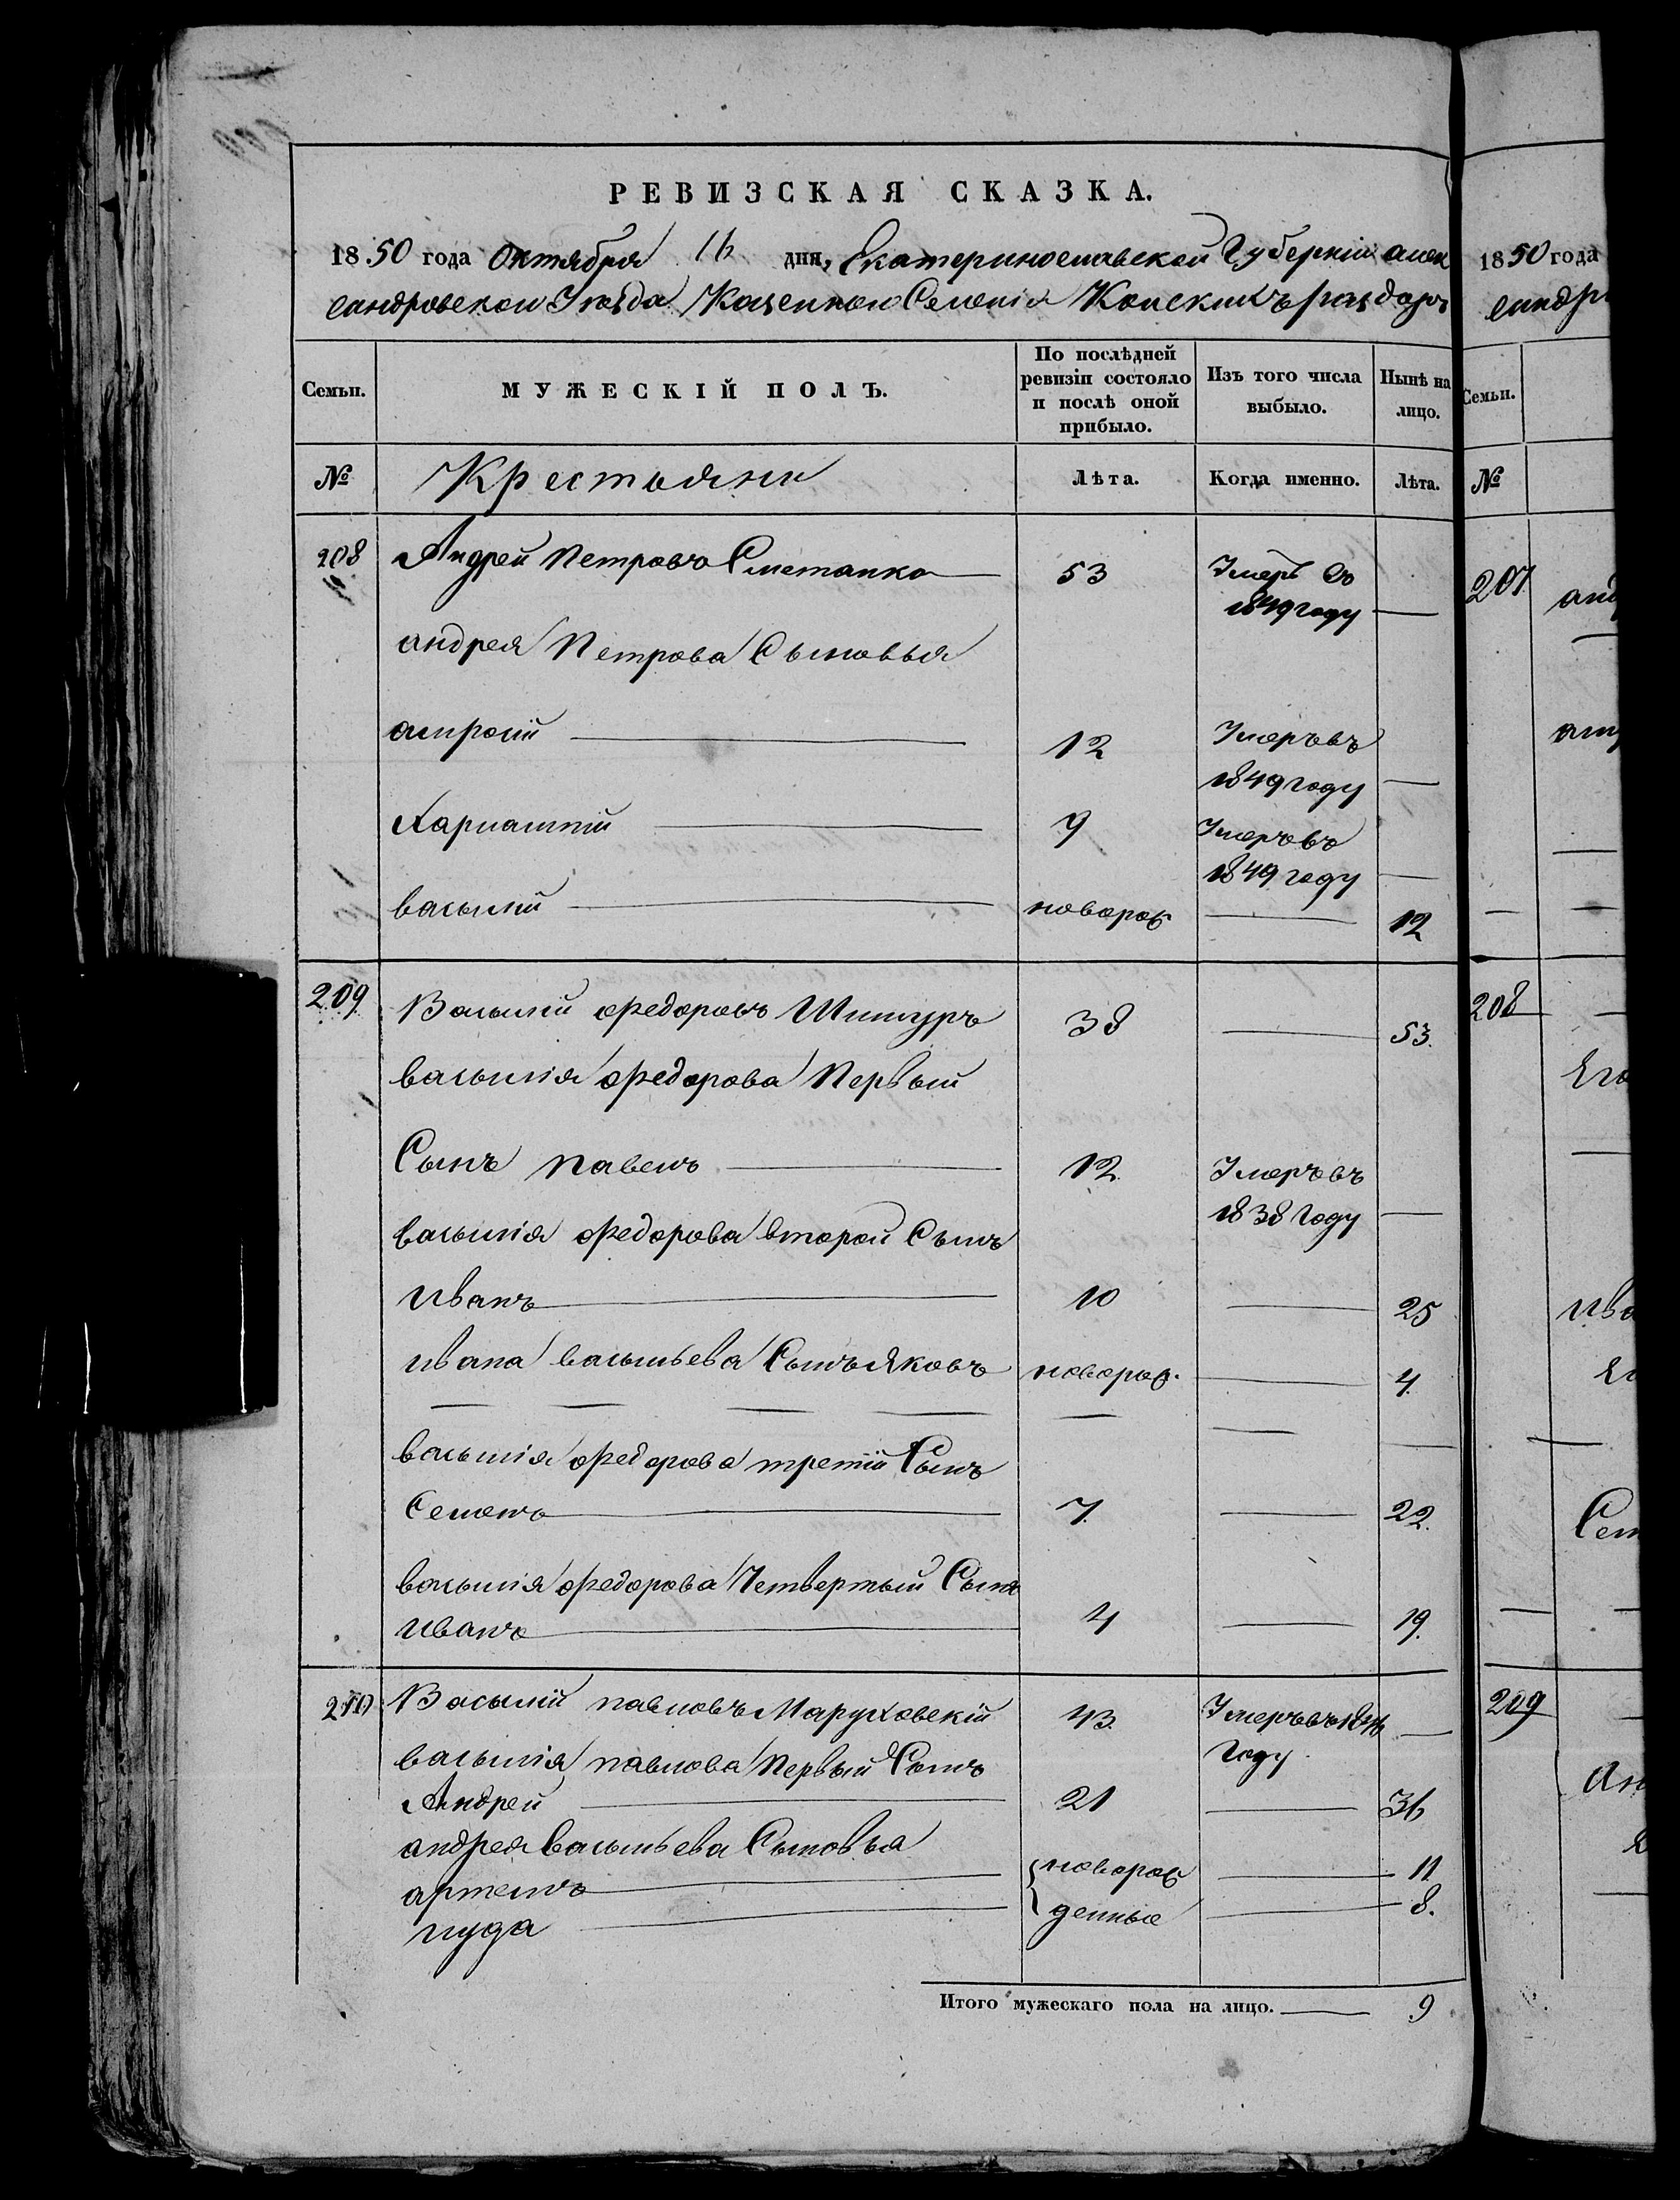 РЕВИЗСКАЯ СКАЗКА.
1850 года Октября 16 дня, Екатеринославской Губерніи алек
сандровской Уезда Казенной Селенія Конскихъ раздоръ
Семьи.
МУЖЕСКІЙ ПОЛЪ.
По послѣдней ревизіи состояло и послѣ оной прибыло.
Изъ того числа выбыло.
Нынѣ на лицо.
№
Крестьяни
Лѣта.
Когда именно.
Лѣта.
208 Андрей Петровъ Сметанка 53 Умеръ въ
1849 году —
андрея Петрова Сыновья
амросій 12 Умеръ въ
1849 году —
Харлампій 9 Умеръ въ
1849 году —
василий новорож — 12
209 Василій федоровъ Шишуръ 38 — 53.
василия федорова Первый
Сынъ павелъ 12 Умеръ въ
1838 году —
василия федорова второй Сынъ
Иванъ 10 — 25
ивана васильева Сынъ Яковъ новорож. — 4.
василия федорова третій Сынъ
Семенъ 7. — 22.
василия федорова Четвертый Сынъ
Иванъ 4 — 19.
210 Василій павловъ Маруховскій 43. Умеръ въ 1846 —
году.
василия павлова Первый Сынъ
Андрей 21 — 36
андрея васильева Сыновья
артемъ новорож — 11
иуда денные — 8.
Итого мужескаго пола на лицо. — 9
1850 года
сандр
Семьи.
№
207
208
Его
Ива
Сем
209
Ан